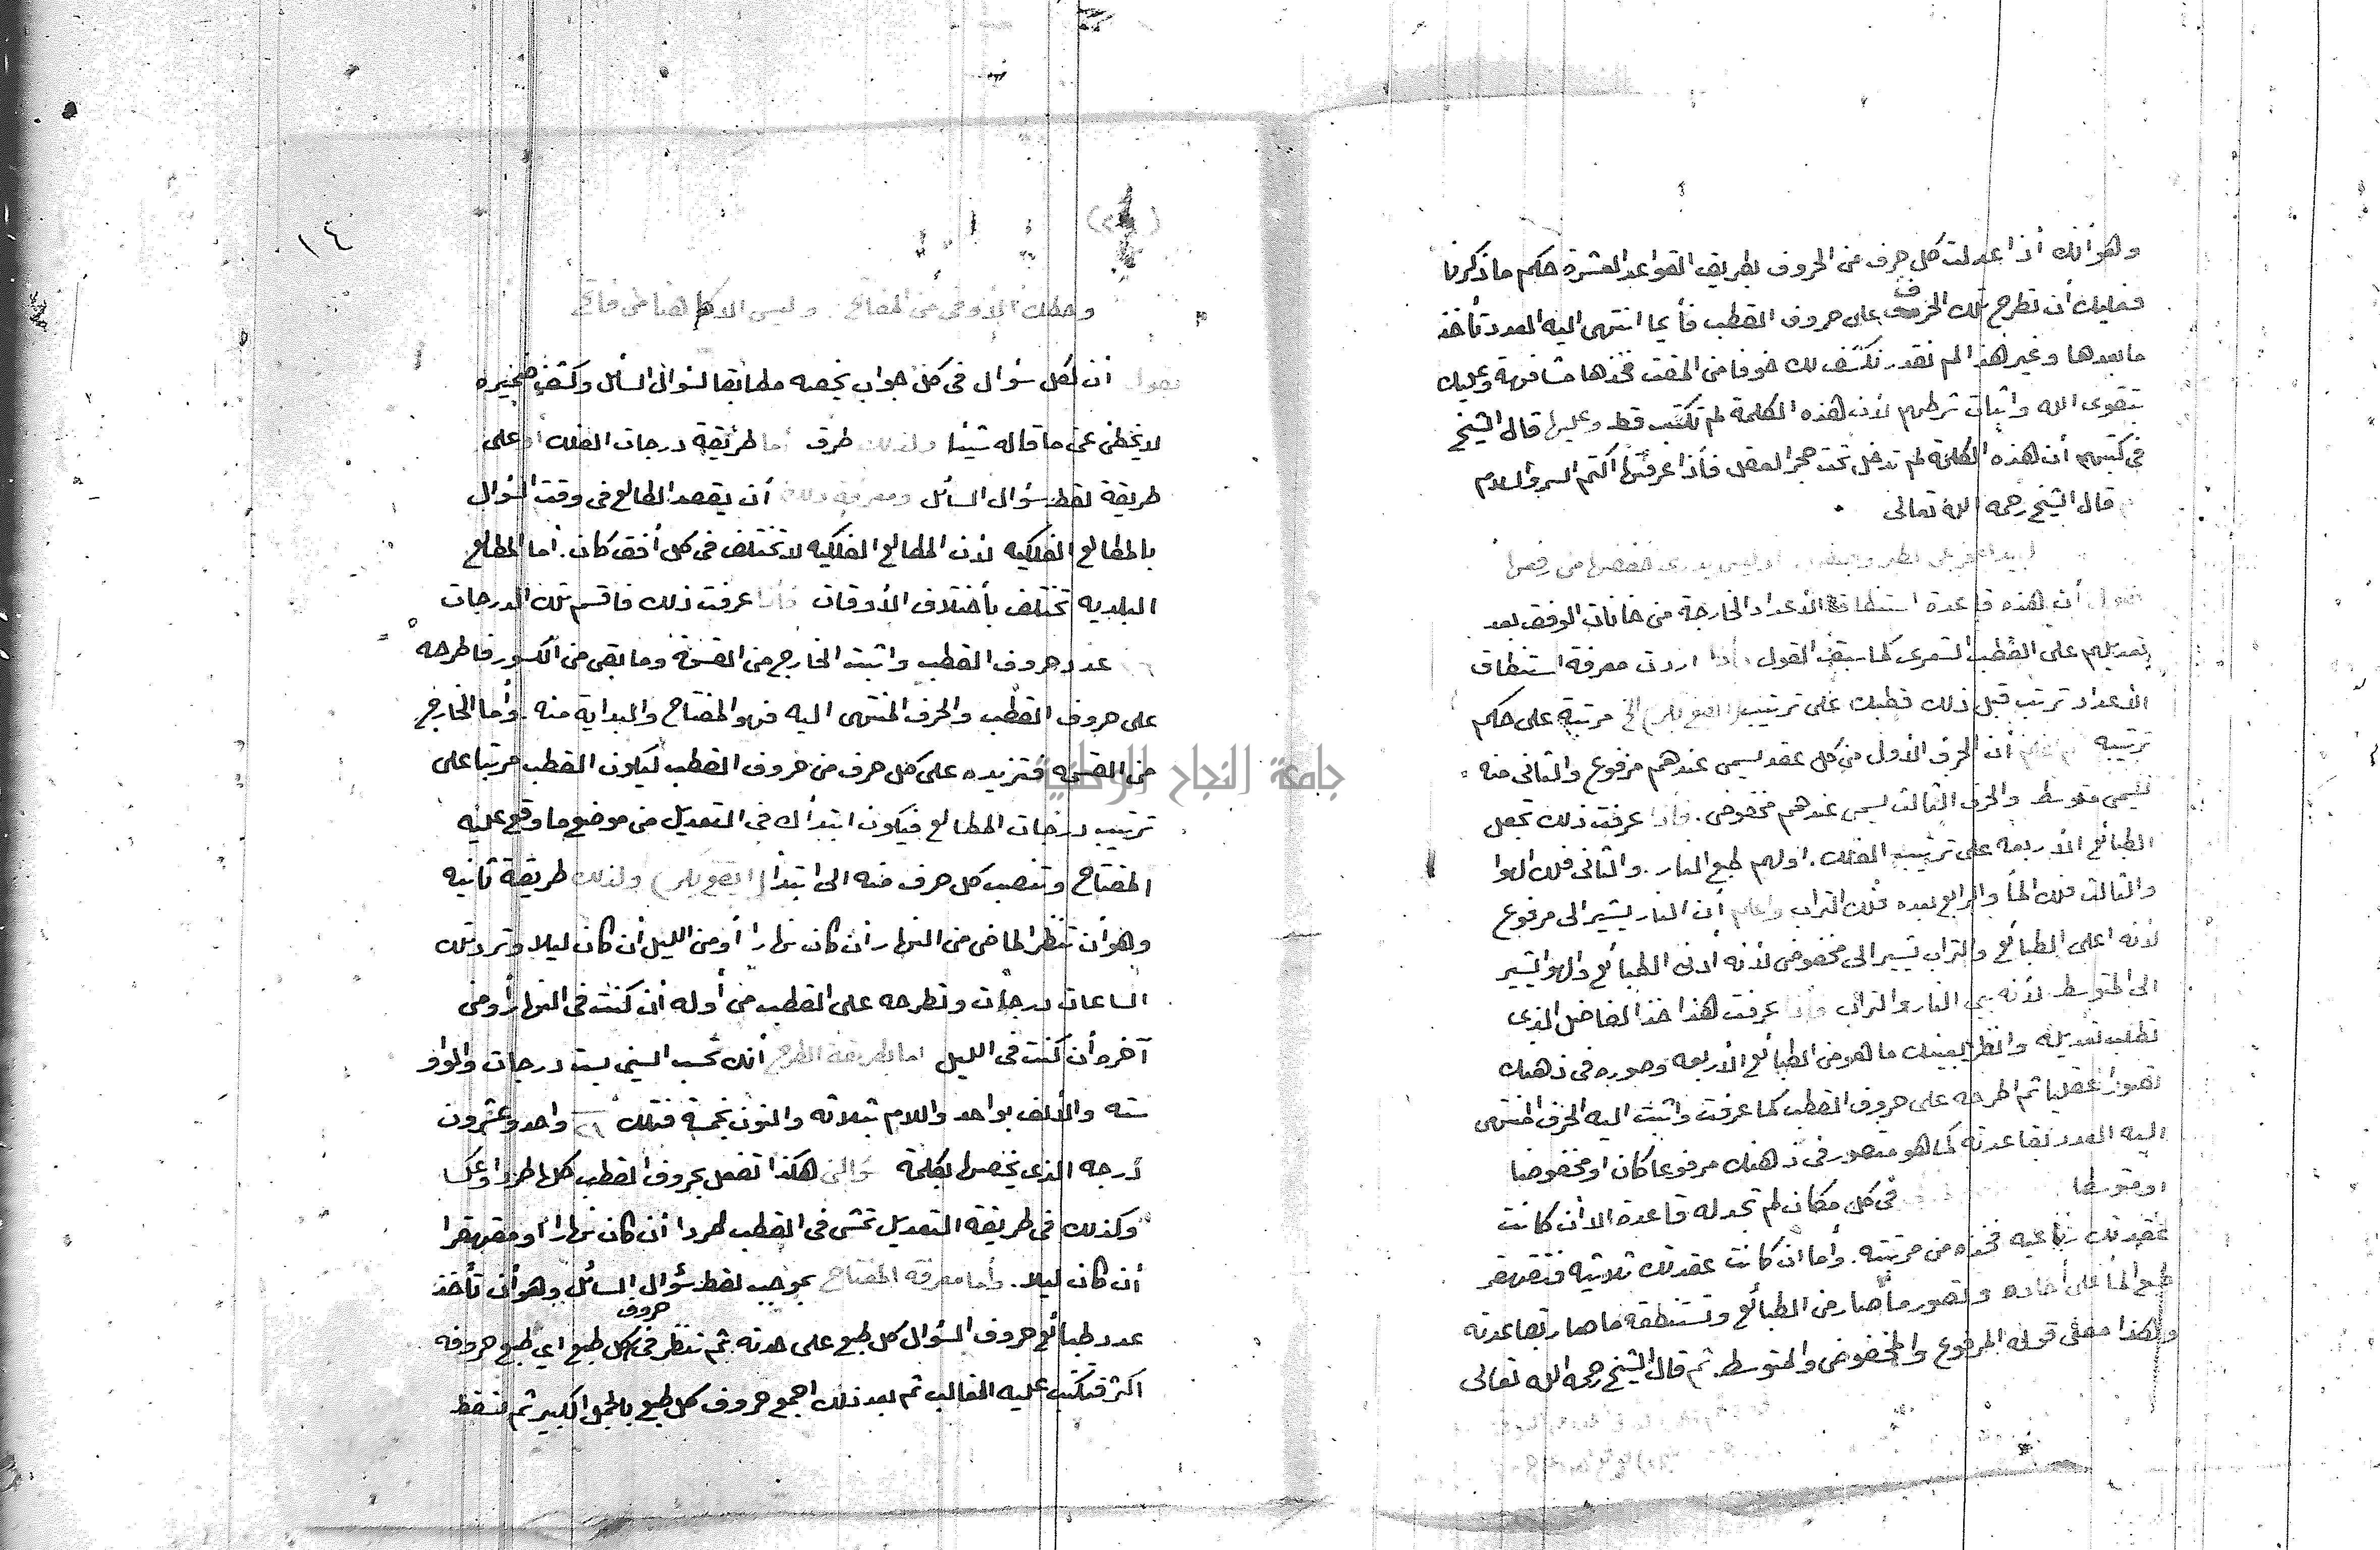 وهو أنك أذا عدلت كل حرف من الحروف بطريق القواعد العشرة حكم ما ذكرنا
فعليك أن تطرح تلك الحروف على حروف القطب فأيما انتهى اليه العدد تأخذ
ما بعدها وغير هذا لم نقدر نكشف لك خوفا من المقت فخذها مشافهة وعليك
بتقوى الله واثبات شرطهم لأن هذه الكلمة لم تكتب قط وعليها قال الشيخ
في كتبهم أن هذه الكلمة لم تدخل تحت حجر العقل فأذا عرفتها اكتم السر والسلام
قال الشيخ رحمه الله تعالى
نقول أن هذه قاعدة استنطاق الأعداد الخارجة من خانات الوفق بعد
تعديلهم على القطب الشعرى كما سبق القول وأذا اردت معرفة استنطاق
الأعداد ترتب قبل ذلك قطبك على ترتيب (ايقغ بكر) الخ مرتبة على حكم
ترتيبه ثم اعلم أن الحرف الأول من كل عقد يسمى عندهم مرفوع والثانى منه
يسمى متوسط والحرف الثالث يسمى عندهم مخفوض. فأذا عرفت ذلك تجعل
الطبائع الأربعه على ترتيب الفلك. اولهم طبع النار. والثانى فلك الهوا
والثالث فلك الماء والرابع بعده فلك التراب واعلم أن النار يشير الى مرفوع
لأنه اعلى الطبائع والتراب تشير الى مخفوض لأنه ادنى الطبائع والهوا تشير
الى المتوسط لأنه بين النار والتراب فأذا عرفت هذا خذ الفاضل الذى
تطلب تعديله وانظر بعينك ما هو من الطبائع الأربعه وصوره فى ذهنك
تصورا عقليا ثم اطرحه على حروف القطب كما عرفت واثبت اليه الحرف المنتهى
اليه العدد بقاعدته كما هو متصور فى ذهنك مرفوعا كان او مخفوضا
او متوسطا فى كل مكان لم تجد له قاعدة الا أن كانت
عقدتك رباعيه فخذه من مرتبته. وأما ان كانت عقدتك ثلاثيه فتقهقر
طبع الماء على أحاده وتصور ما صار من الطبائع وتستنطقه ما صار بقاعدته
وهكذا معنى قوله المرفوع والمخفوض والمتوسط. ثم قال الشيخ رحمه الله تعالى
١٤
وحظك الأوفى من المفاتح وليس الا كل
نقول أن لكل سؤال فى كل جواب يخصه مطابقا لسؤال السائل وكشف ضميره
لا يخطئ عن ما قاله شيئا ولذلك طرق أما طريقة درجات الفلك أو على
طريقة لفظ سؤال السائل ومعرفة ذلك أن يقصد الطالع فى وقت السؤال
بالمطالع الفلكيه لأن المطالع الفلكيه لا تختلف فى كل أفق كان. أما المطالع
البلديه تختلف بأختلاف الأوقات فأذا عرفت ذلك فاقسم تلك الدرجات
عدد حروف القطب واثبت الخارج من القسمة وما بقى من الكسور فاطرحه
على حروف القطب والحرف المنتهى اليه فهو المفتاح والبداية منه. وأما الخارج
من القسمه فتزيده على كل حرف من حروف القطب ليكون القطب مرتبا على
ترتيب درجات المطالع فيكون ابتدأك فى التعديل من موضع ما وقع عليه
المفتاح وتنصب كل حرف منه الى ابتدأ (ايقغ بكر) ولذلك طريقة ثانيه
وهو أن تنظر الماضى من النهار أن كان نهارا أو من الليل أن كان ليلا وترد تلك
الساعات درجات وتطرحه على القطب من أوله أن كنت فى النهار أو من
آخره أن كنت فى الليل اما طريقة الطرح أنك تحسب السين بست درجات والواو
سته والألف بواحد واللام بثلاثه والنون بخمسة فتلك ٢١ واحد وعشرون
درجه الذى يخصها بكلمة هكذا تفعل بحروف القطب كلها طردا وعكسا
وكذلك فى طريقة التعديل تمشى فى القطب طردا أن كان نهارا أو مقهقرا
أن كان ليلا. وأما معرفة المفتاح بموجب لفظ سؤال السائل وهو أن تأخذ
عدد طبائع حروف السؤال كل طبع على حدته ثم تنظر فى حروف كل طبع اي طبع حروفه
اكثر فتكتب عليه الغالب ثم بعد ذلك اجمع حروف كل طبع بالجمل الكبير ثم تنقط
جامعة النجاح الوطنية